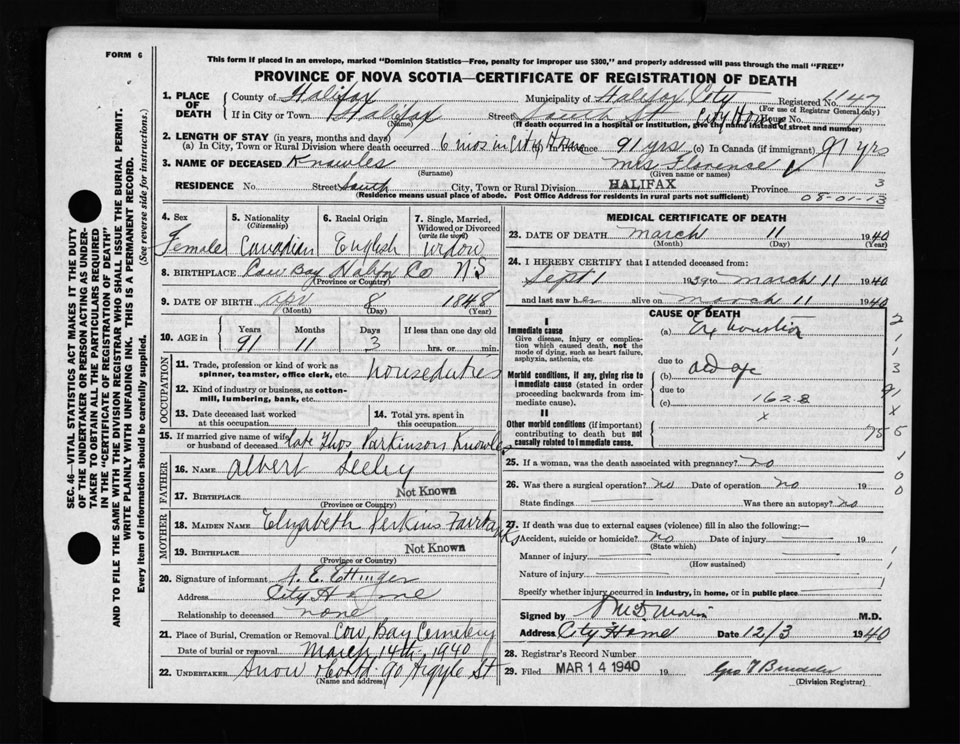 FORM 6
This form if placed in an envelope, marked "Dominion Statistics—Free, penalty for improper use $300," and properly addressed will pass through the mail "FREE"
PROVINCE OF NOVA SCOTIA—CERTIFICATE OF REGISTRATION OF DEATH
SEC. 46—VITAL STATISTICS ACT MAKES IT THE DUTY
OF THE UNDERTAKER OR PERSON ACTING AS UNDER-
TAKER TO OBTAIN ALL THE PARTICULARS REQUIRED
IN THE "CERTIFICATE OF REGISTRATION OF DEATH"
AND TO FILE THE SAME WITH THE DIVISION REGISTRAR WHO SHALL ISSUE THE BURIAL PERMIT.
WRITE PLAINLY WITH UNFADING INK. THIS IS A PERMANENT RECORD.
Every item of information should be carefully supplied. (See reverse side for instructions.)
1. PLACE OF DEATH County of Halifax Municipality of Halifax City Registered No.
(For use of Registrar General only)
If in City or Town Halifax Street South St City Home House No.
(Name) (If death occurred in a hospital or institution, give the name instead of street and number)
2. LENGTH OF STAY (in years, months and days)
(a) In City, Town or Rural Division where death occurred 6 mos in City Home Province 91 yrs (c) In Canada (if immigrant) 91 yrs
3. NAME OF DECEASED Knowles Mrs Florence
(Surname) (Given name or names)
RESIDENCE No. Street South City, Town or Rural Division HALIFAX Province 3
(Residence means usual place of abode. Post Office Address for residents in rural parts not sufficient) 08-01-13
4. Sex Female
5. Nationality (Citizenship) Canadian
6. Racial Origin English
7. Single, Married, Widowed or Divorced (write the word) widow
8. BIRTHPLACE Cow Bay Halifax Co NS
(Province or Country)
9. DATE OF BIRTH Apr 8 1848
(Month) (Day) (Year)
10. AGE in Years Months Days If less than one day old
91 11 3 hrs. or min.
OCCUPATION
11. Trade, profession or kind of work as spinner, teamster, office clerk, etc. houseduties
12. Kind of industry or business, as cotton-mill, lumbering, bank, etc.
13. Date deceased last worked at this occupation
14. Total yrs. spent in this occupation
15. If married give name of wife or husband of deceased late Thos Parkinson Knowles
FATHER
16. NAME Albert Seeley
17. BIRTHPLACE Not Known
(Province or Country)
MOTHER
18. MAIDEN NAME Elizabeth Perkins Fairbanks
19. BIRTHPLACE Not Known
(Province or Country)
20. Signature of informant A. E. Ettinger
Address City Home
Relationship to deceased none
21. Place of Burial, Cremation or Removal Cow Bay Cemetery
Date of burial or removal March 14th 1940
22. UNDERTAKER Snow & Co Ltd 90 Argyle St
(Name and address)
MEDICAL CERTIFICATE OF DEATH
23. DATE OF DEATH March 11 1940
(Month) (Day) (Year)
24. I HEREBY CERTIFY that I attended deceased from:
Sept 1 1939 to March 11 1940
and last saw her alive on March 11 1940
CAUSE OF DEATH
I
Immediate cause
Give disease, injury or complication which caused death, not the mode of dying, such as heart failure, asphyxia, asthenia, etc
(a) Exhaustion
due to
Morbid conditions, if any, giving rise to immediate cause (stated in order proceeding backwards from immediate cause).
(b) old age
due to
(c) 162.8
II
Other morbid conditions (if important) contributing to death but not causally related to immediate cause.
x
25. If a woman, was the death associated with pregnancy? no
26. Was there a surgical operation? no Date of operation no 19
State findings Was there an autopsy? no
27. If death was due to external causes (violence) fill in also the following:—
Accident, suicide or homicide? no Date of injury 19
(State which)
Manner of injury
(How sustained)
Nature of injury
Specify whether injury occurred in industry, in home, or in public place
Signed by M.D.
Address City Home Date 12/3 1940
28. Registrar's Record Number
29. Filed MAR 14 1940 19
(Division Registrar)